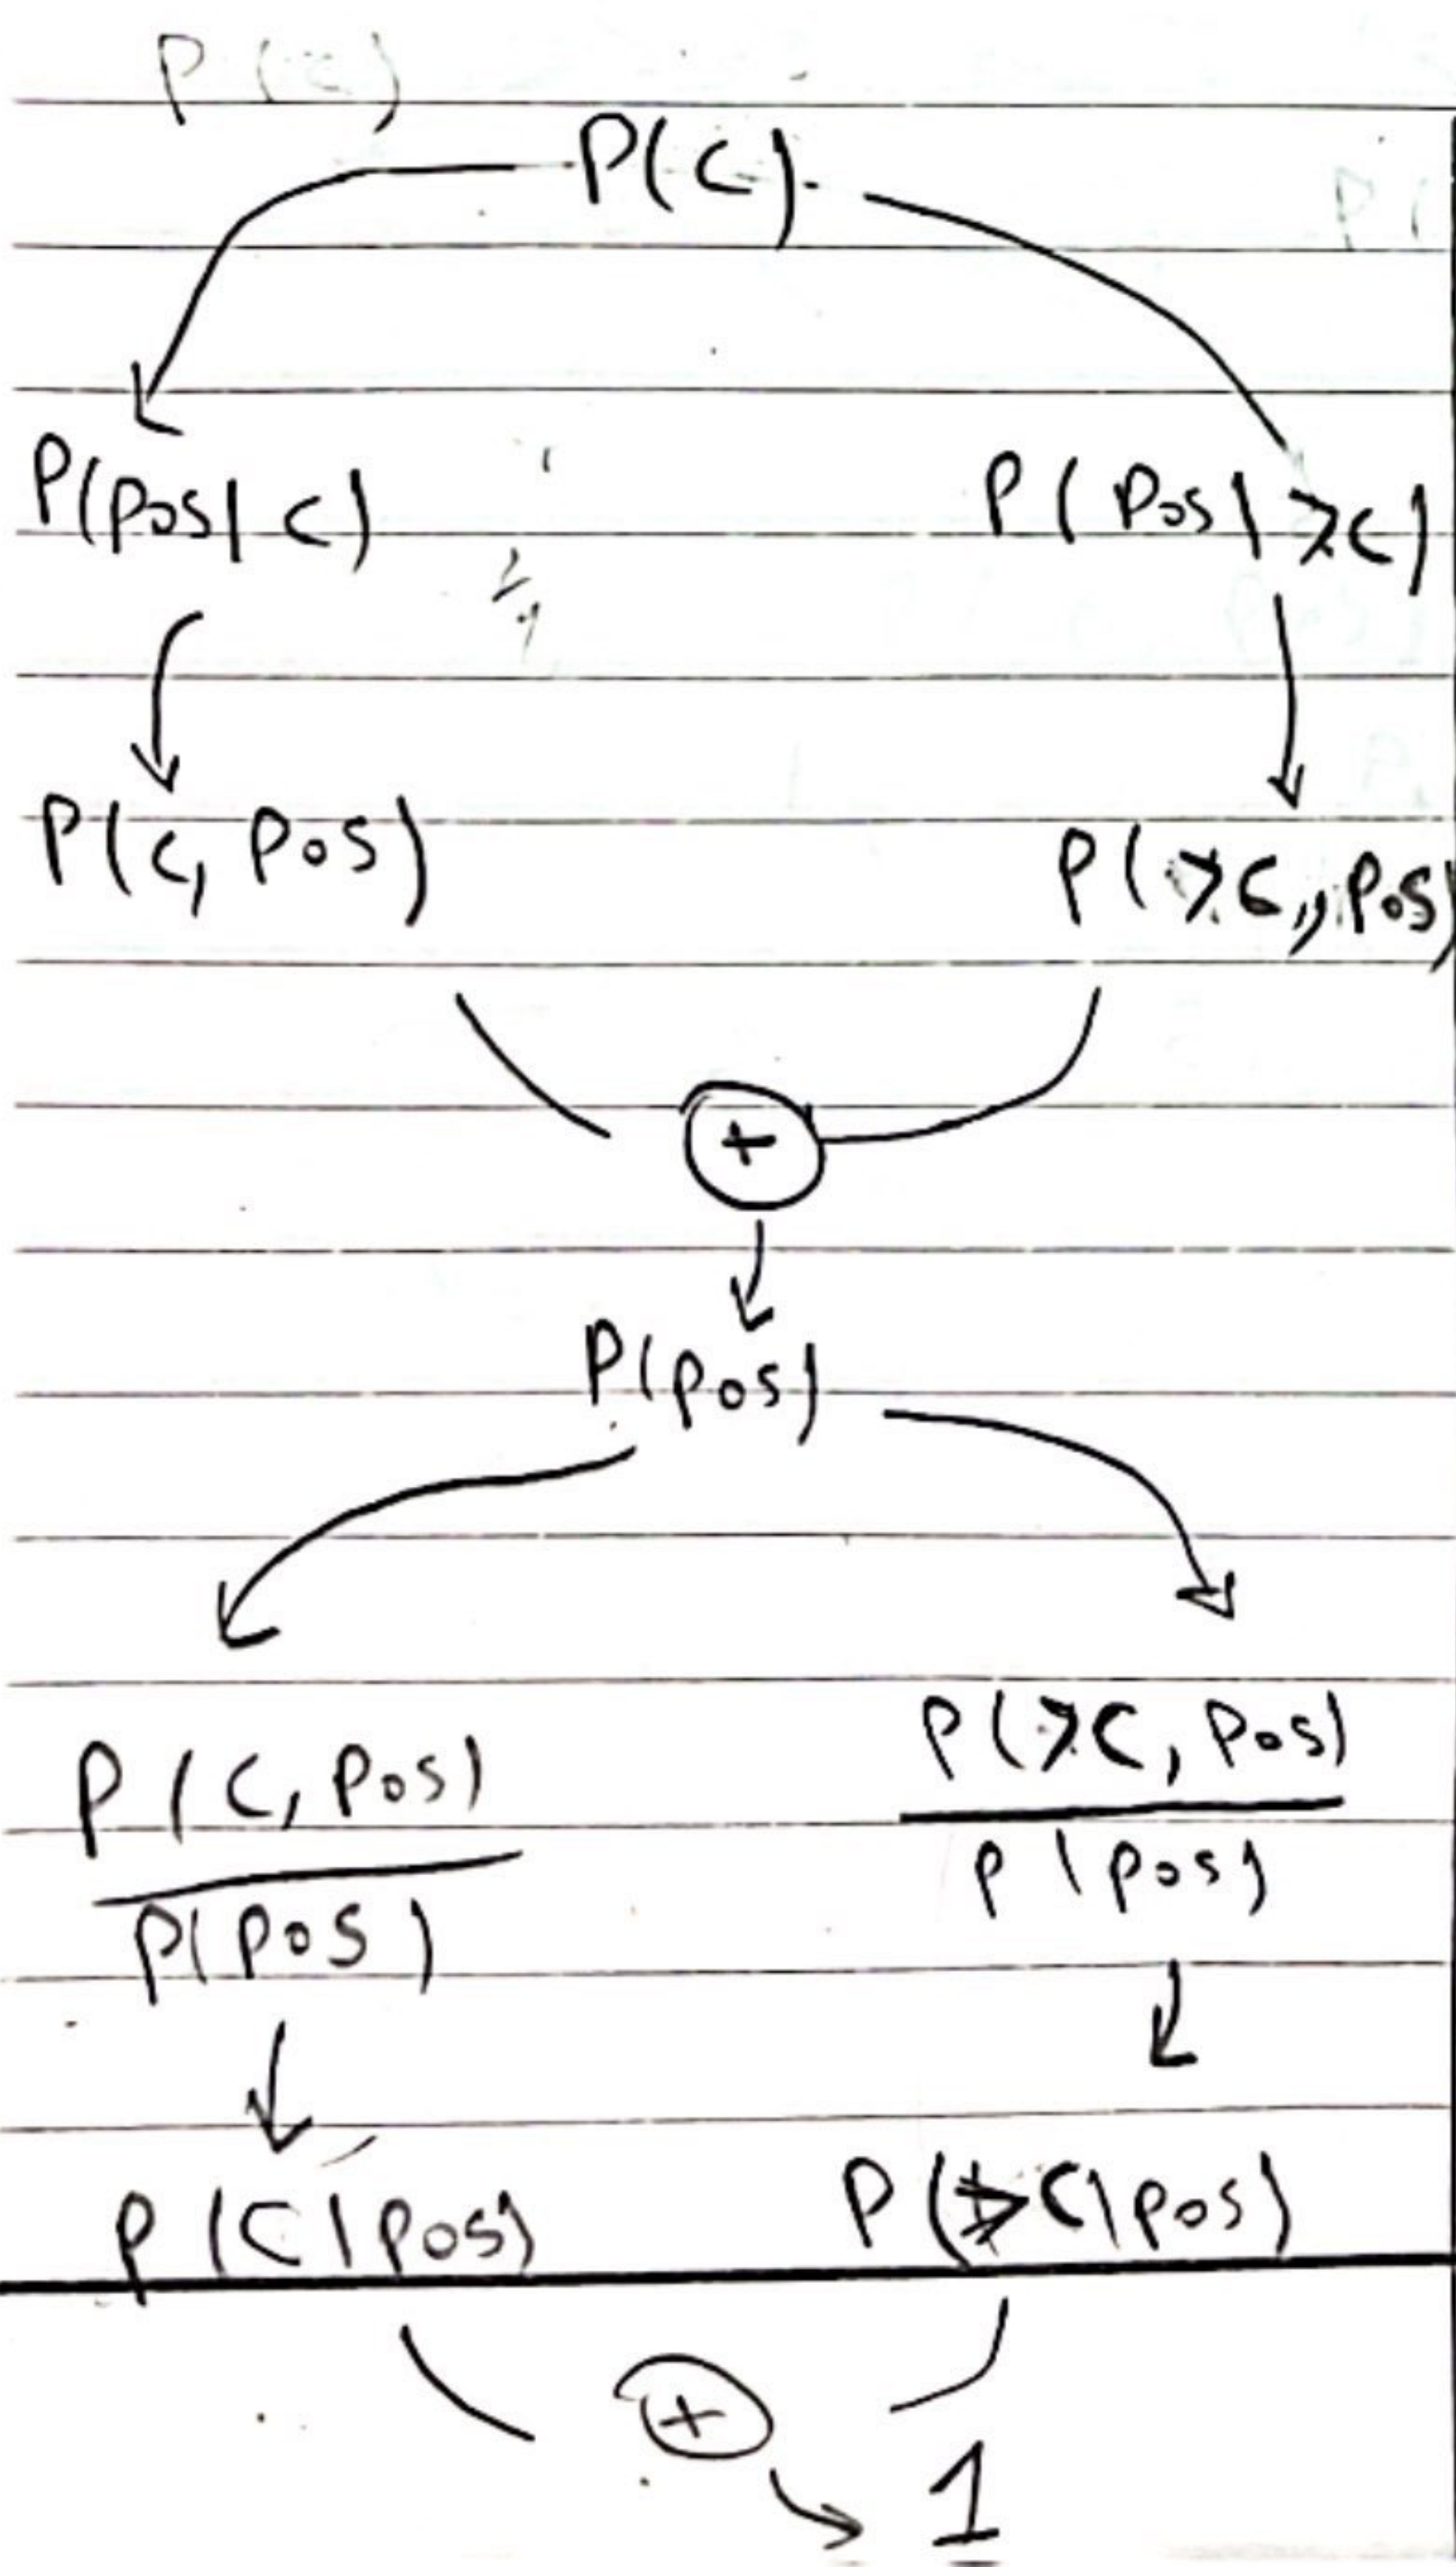 P(C)
P(C)
P(Pos|C) P(Pos|¬C)
P(C, Pos) P(¬C, Pos)
+
P(Pos)
P(C, Pos) P(¬C, Pos)
P(Pos) P(Pos)
P(C|Pos) P(¬C|Pos)
+
1